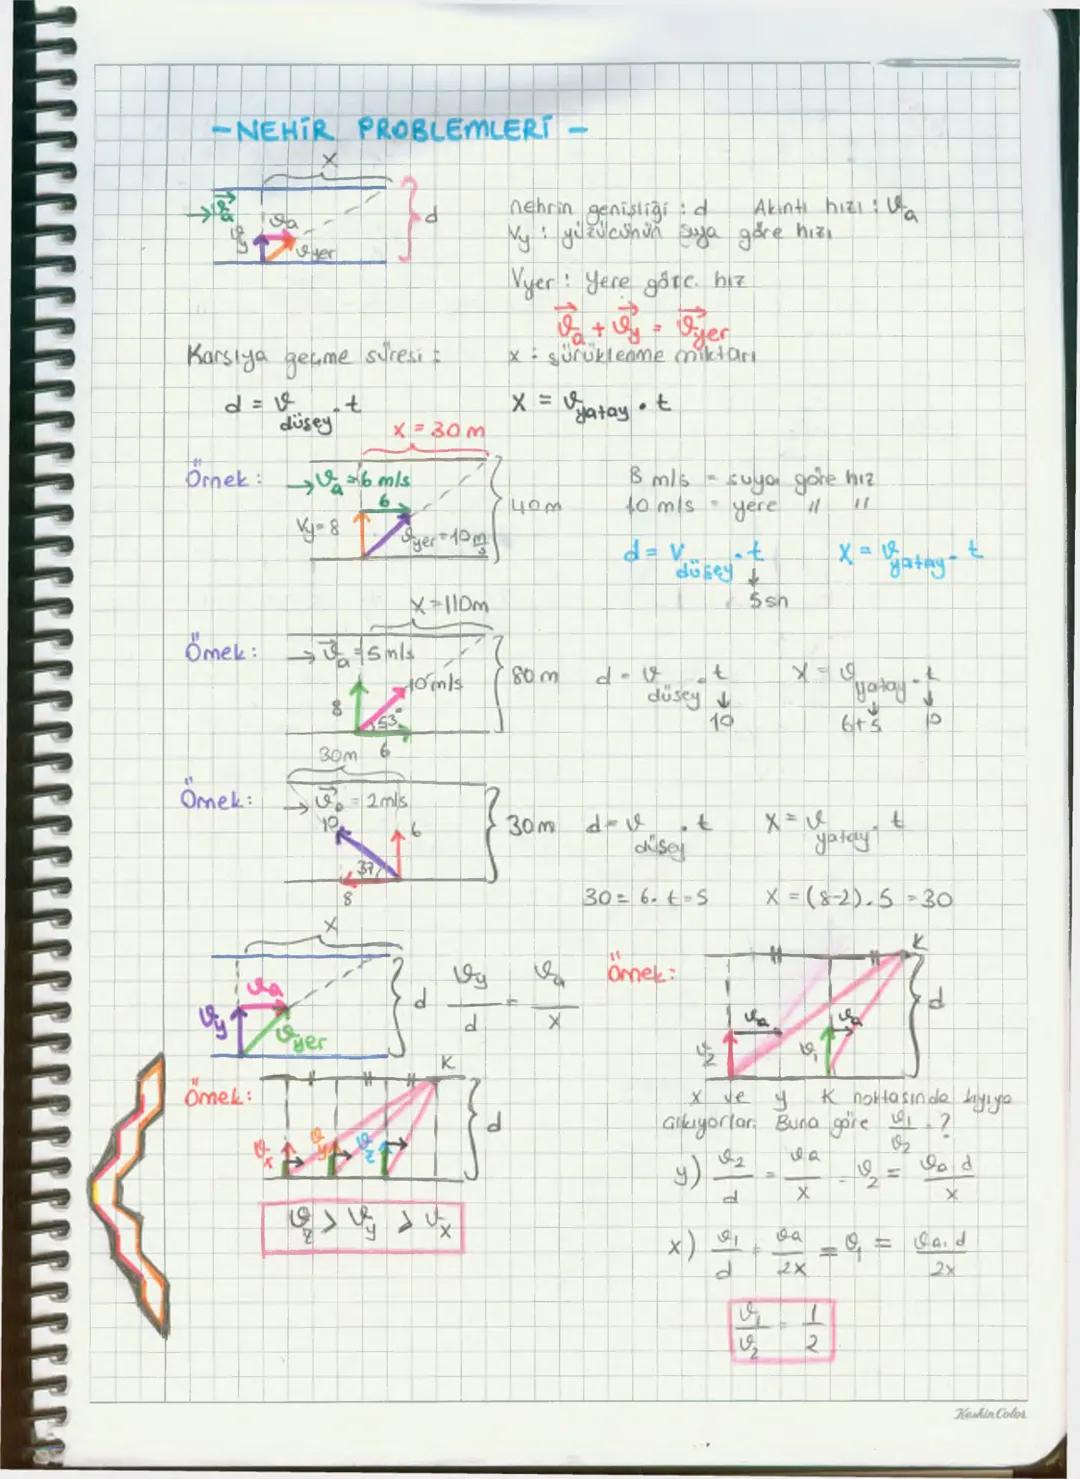 -NEHİR PROBLEMLERİ -
x
→ϑa
ϑa
ϑy
ϑyer
d
nehrin genişliği : d Akıntı hızı : ϑa
Vy : yüzücünün suya göre hızı
Vyer : Yere göre hız
ϑa + ϑy = ϑyer
Karşıya geçme süresi :
x : sürüklenme miktarı
d = ϑdüşey . t
x = ϑyatay . t
x = 30 m
Örnek :
→ϑa = 6 m/s
6
Vy = 8
ϑyer = 10 m/s
40m
8 m/s = suya göre hız
10 m/s = yere // //
d = Vdüşey . t
↓
5 sn
x = ϑyatay . t
x = 110m
Örnek :
→ϑa = 5 m/s
10 m/s
8
53°
6
80 m
d = ϑdüşey . t
↓
10
x = ϑyatay . t
↓ ↓
6+5 10
30m
Örnek :
→ 2 m/s
10
6
37
8
30m
d = ϑdüşey . t
x = ϑyatay . t
30 = 6. t = 5
x = (8-2). 5 = 30
x
ϑa
ϑy
ϑyer
d
ϑy/d = ϑa/x
Örnek:
K
d
ϑa
ϑa
ϑ2
ϑ1
Örnek:
K
d
ϑx
ϑy
ϑz
ϑz > ϑy > ϑx
x ve y K noktasında kıyıya
çıkıyorlar. Buna göre ϑ1/ϑ2 = ?
y) ϑ2/d = ϑa/x = ϑ2 = ϑa.d/x
x) ϑ1/d = ϑa/2x = ϑ1 = ϑa.d/2x
ϑ1/ϑ2 = 1/2
Keskin Color